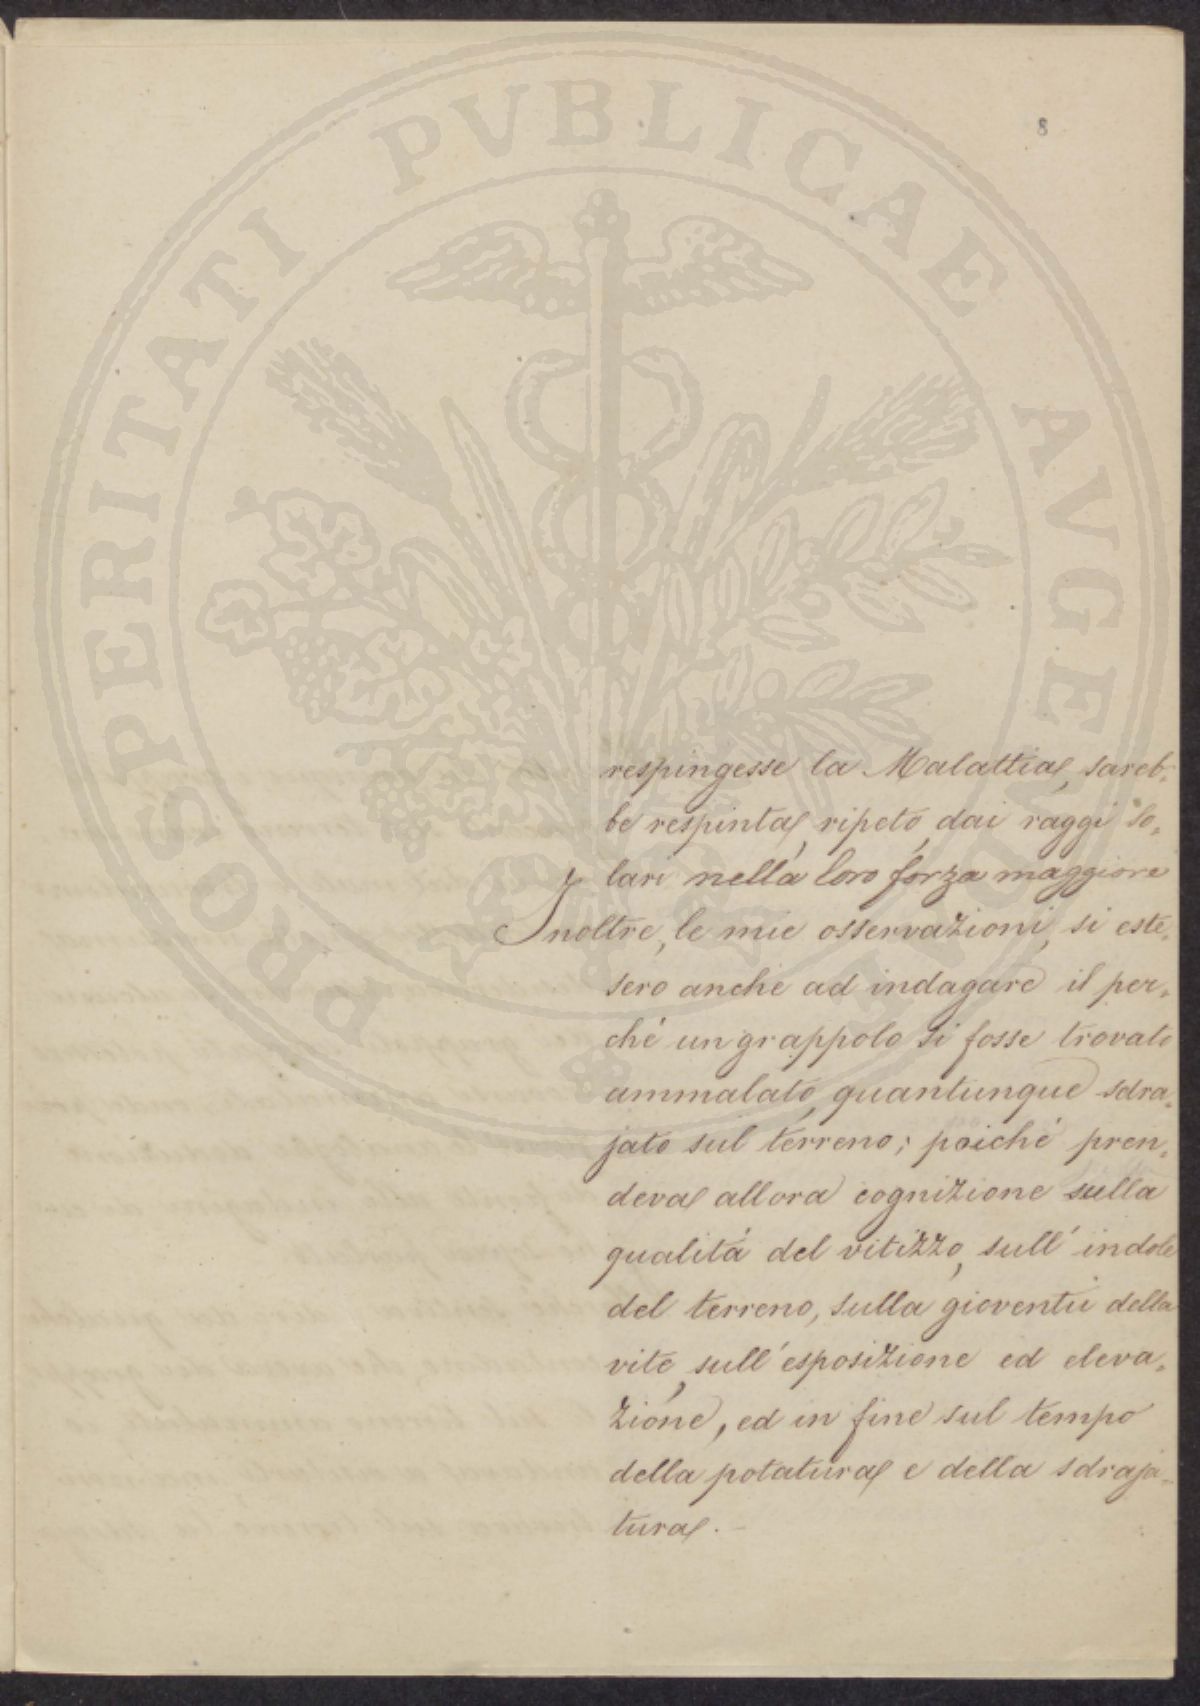 PROSPERITATI PVBLICAE AVGENDAE
8
respingesse la Malattia, sareb=
be respinta, ripeto, dai raggi So=
lari nella loro forza maggiore
Inoltre, le mie osservazioni, si este=
sero anche ad indagare il per=
ché un grappolo si fosse trovato
ammalato, quantunque sdra=
jato sul terreno; poiché pren=
deva allora cognizione sulla
qualità del vitizzo, sull'indole
del terreno, sulla gioventù della
vite, sull'esposizione ed eleva=
zione, ed in fine sul tempo
della potatura e della sdraja=
tura. -